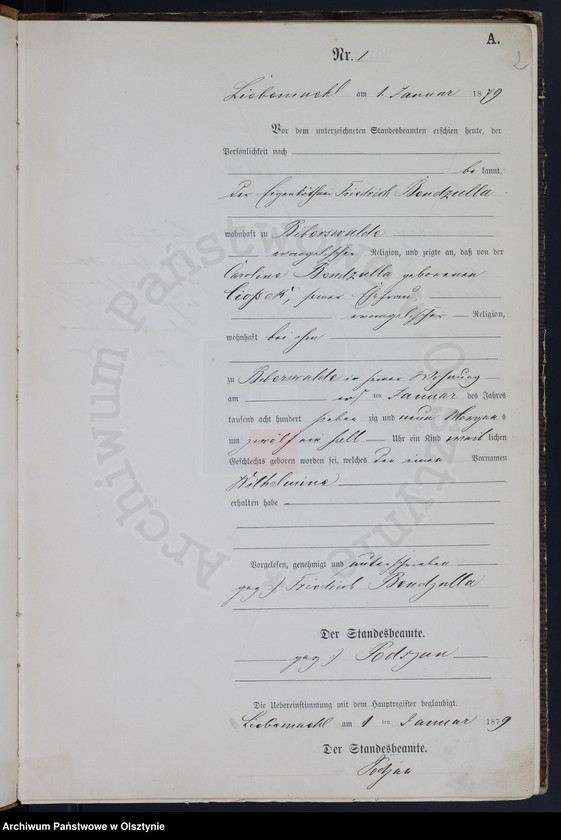 A.
2
Nr. 1
Liebemuehl am 1. Januar 1879
Vor dem unterzeichneten Standesbeamten erschien heute, der
Persönlichkeit nach
be kannt,
der Eigenkäthner Friedrich Bendzulla
wohnhaft zu Biberswalde
evangelischer Religion, und zeigte an, daß von der
Caroline Bendzulla geborenen
seiner Ehefrau,
evangelischer Religion,
wohnhaft bei ihm
zu Biberswalde in seiner Wohnung
am ersten Januar des Jahres
tausend acht hundert sieben zig und neun Morgens
um zwölf ein halb Uhr ein Kind weib lichen
Geschlechts geboren worden sei, welches den einen Vornamen
Wilhelmine
erhalten habe
Vorgelesen, genehmigt und unterschrieben
gez.) Friedrich Bendzulla
Der Standesbeamte.
gez.) Podszun
Die Uebereinstimmung mit dem Hauptregister beglaubigt.
Liebemuehl am 1 ten Januar 1879
Der Standesbeamte.
Archiwum Państwowe w Olsztynie
Archiwum Państwowe w Olsztynie